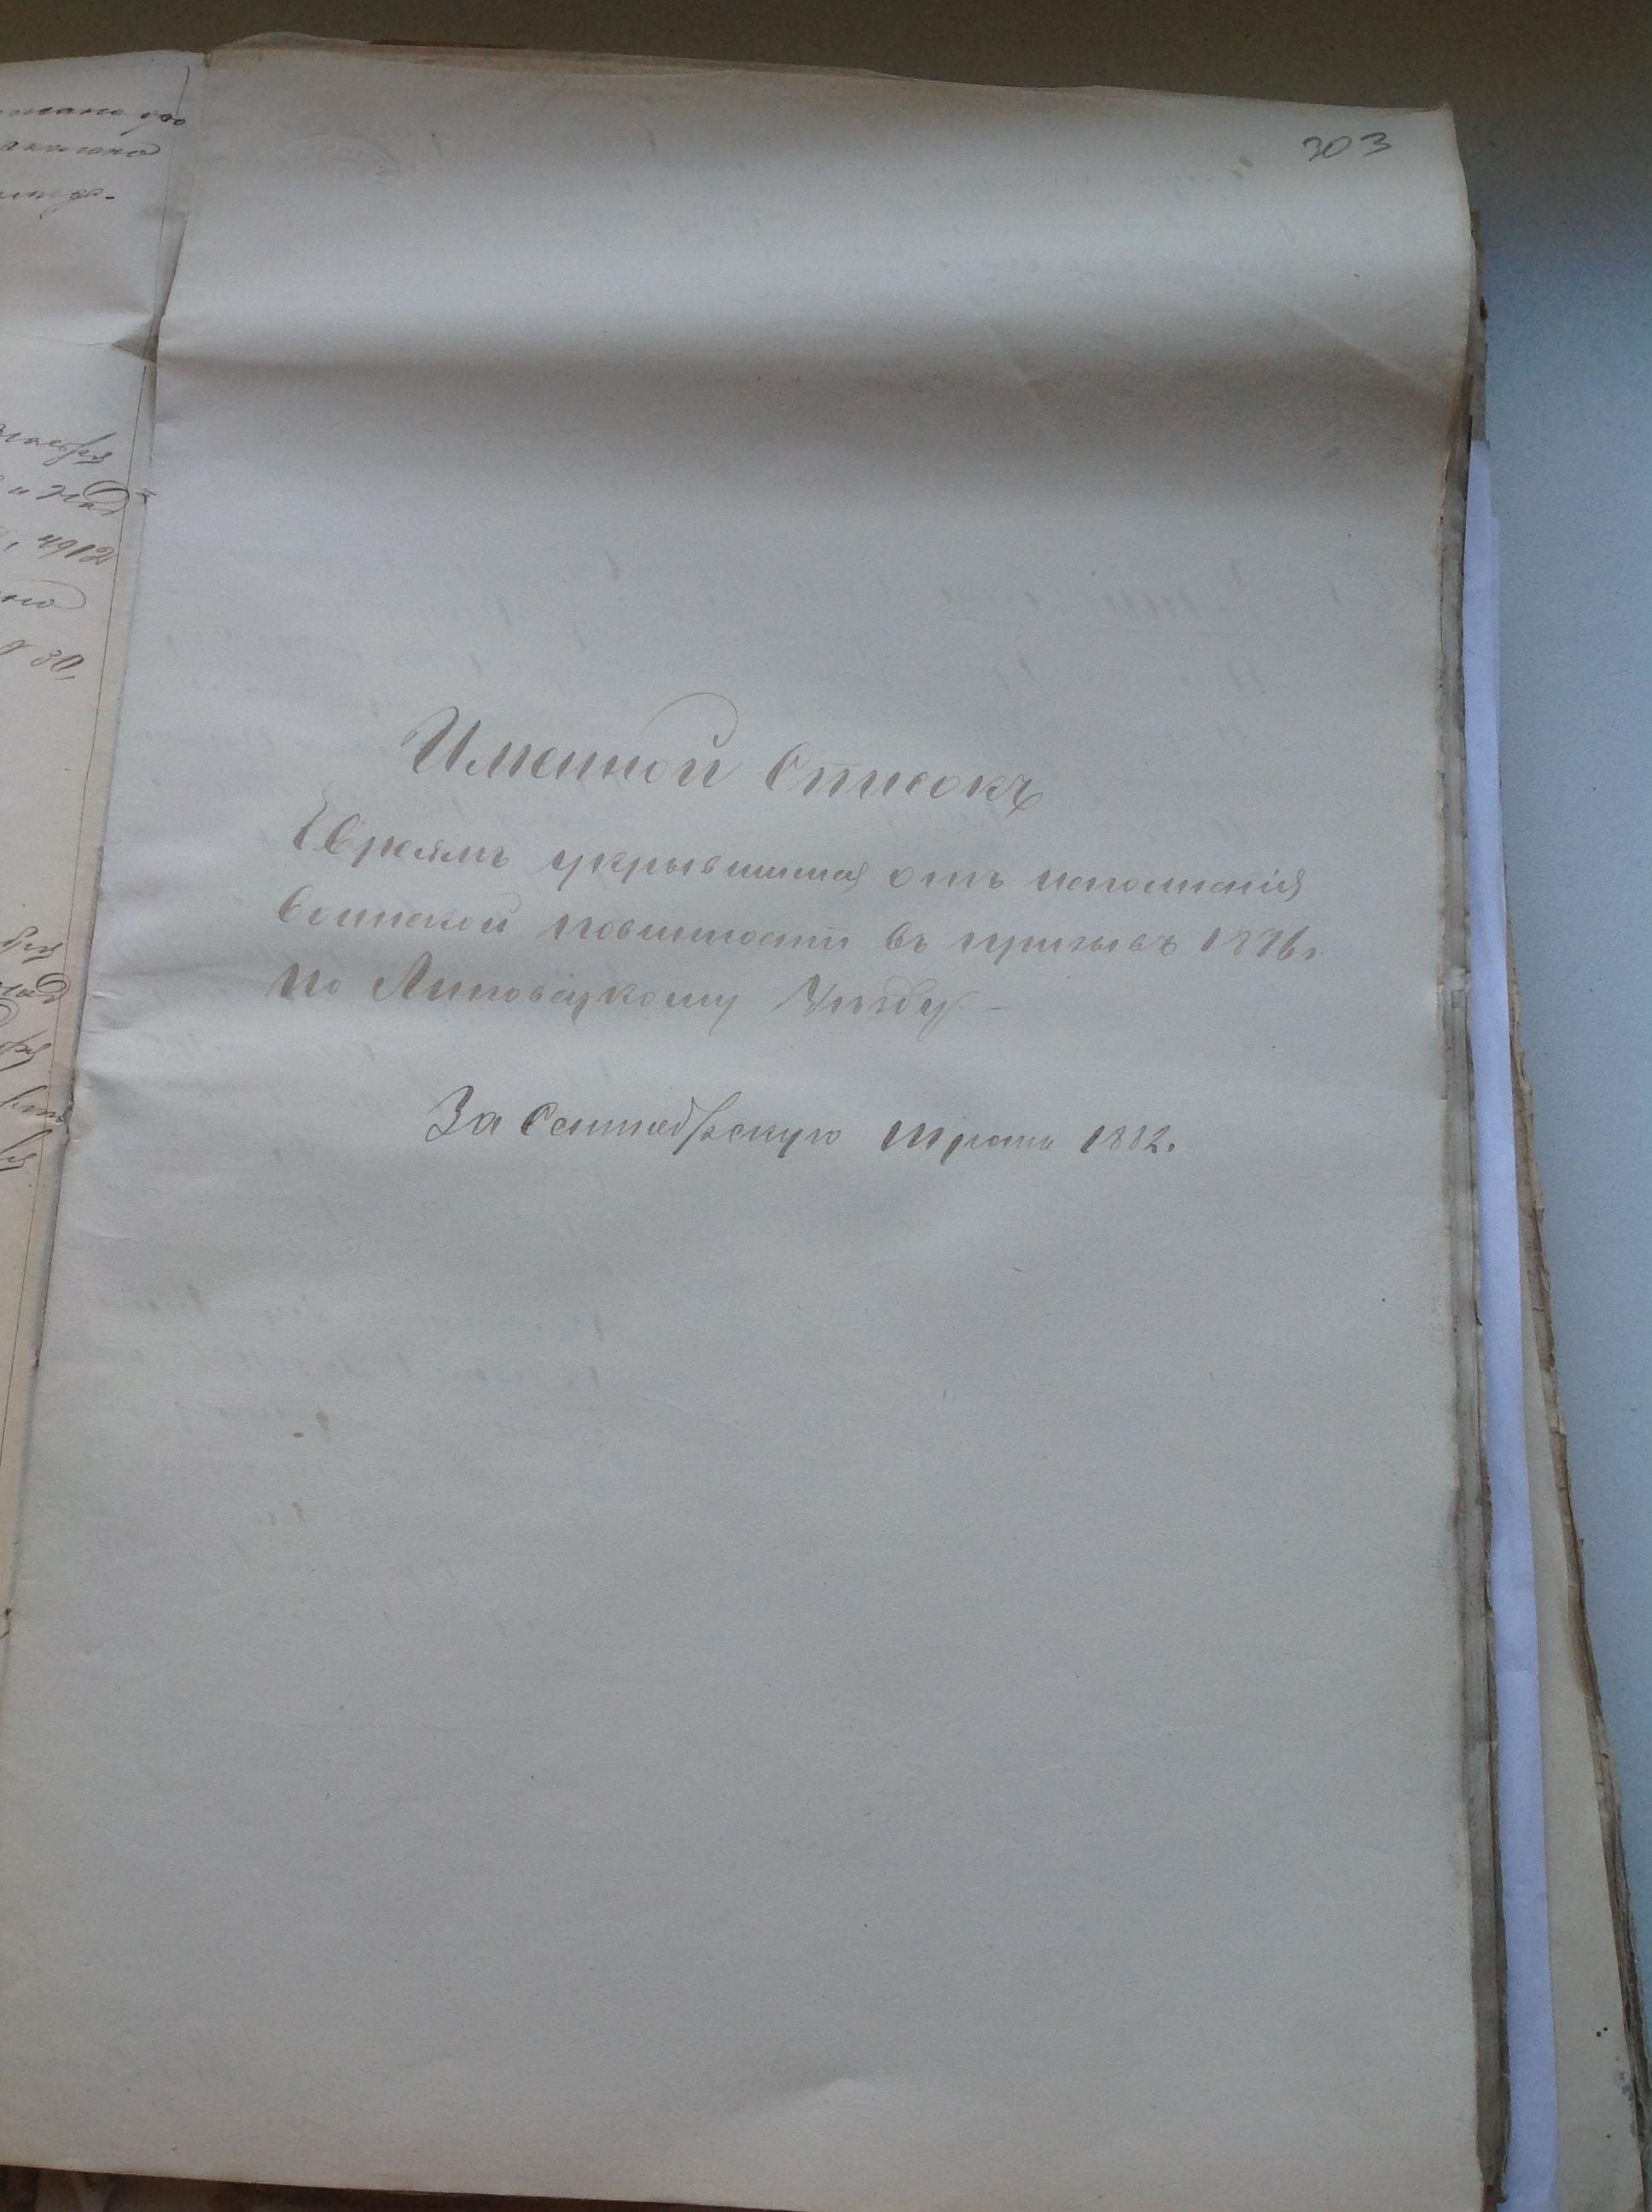 303
Именной Списокъ
Евреямъ укрывшимся отъ исполненія
воинской повинности въ призывъ 1876 г.
по Липовецкому Уѣзду. –
За Сентябрскую треть 1882.
4912
30,